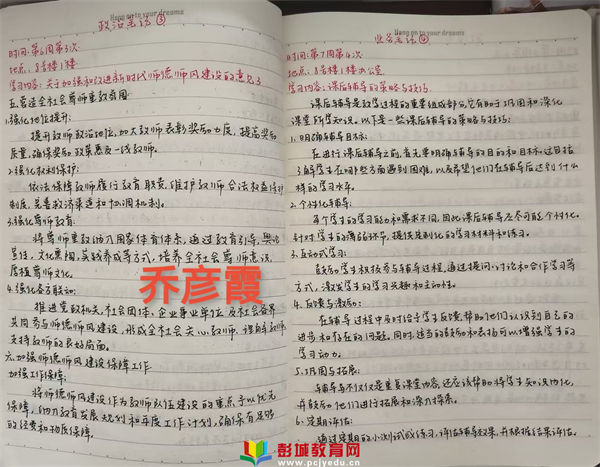 Hang on to your dreams
政治笔记③
时间:第6周第3次
地点:8号楼1楼
学习内容:关于加强和改进新时代师德师风建设的意见3
五.营造全社会尊师重教氛围
1.强化地位提升:
提升教师政治地位,加大教师表彰奖励力度,提高奖励
质量,确保奖励政策惠及一线教师。
2.强化权利保护:
依法保障教师履行教育职责,维护教师合法权益保护
制度,完善救济渠道和协调机制。
3.强化尊师教育:
将尊师重教纳入国家体育体系,通过教育引导,舆论
宣传,文化熏陶,实践养成等方式,培养全社会尊师意识,
厚植尊师文化。
4.强化各方联动:
推进党政机关,社会团体,企业事业单位及社会各界
共同参与师德师风建设,形成全社会关心教师,
支持教师的良好局面。
六.加强师德师风建设保障工作
加强工作保障:
将师德师风建设作为教师队伍建设的重点予以优先
保障,纳入教育发展规划和年度工作计划,确保有足够
的经费和物质保障,
乔彦霞
Hang on to your dreams
业务笔记④
时间:第7周第4次
地点:8号楼1楼办公室
学习内容:课后辅导的策略与技巧.
课后辅导是教学过程的重要组成部分,它有助于巩固和深化
课堂所学知识。以下是一些课后辅导的策略与技巧:
1.明确辅导目标:
在进行课后辅导之前,首先要明确辅导的目的和目标。这包括
了解学生在哪些方面遇到困难,以及希望他们在辅导后达到什么
样的学习水平。
2.个性化辅导:
每个学生的学习能力和需求不同,因此课后辅导应尽可能个性化。
针对学生的薄弱环节,提供定制化的学习材料和练习。
3.互动式学习:
鼓励学生积极参与辅导过程,通过提问、讨论和合作学习等
方式,激发学生的学习兴趣和主动性。
4.反馈与激励:
在辅导过程中及时给予学生反馈,帮助他们认识到自己的
进步和存在的问题。同时,适当的鼓励和表扬可以增强学生的
学习动力。
5.巩固与拓展:
辅导不仅仅是重复课堂内容,还应该帮助将学生知识内化,
并鼓励他们进行拓展和深入探索。
6.定期评估:
通过定期的小测试或练习,评估辅导效果,并根据结果评估。
彭城教育网
www.pcjyedu.cn